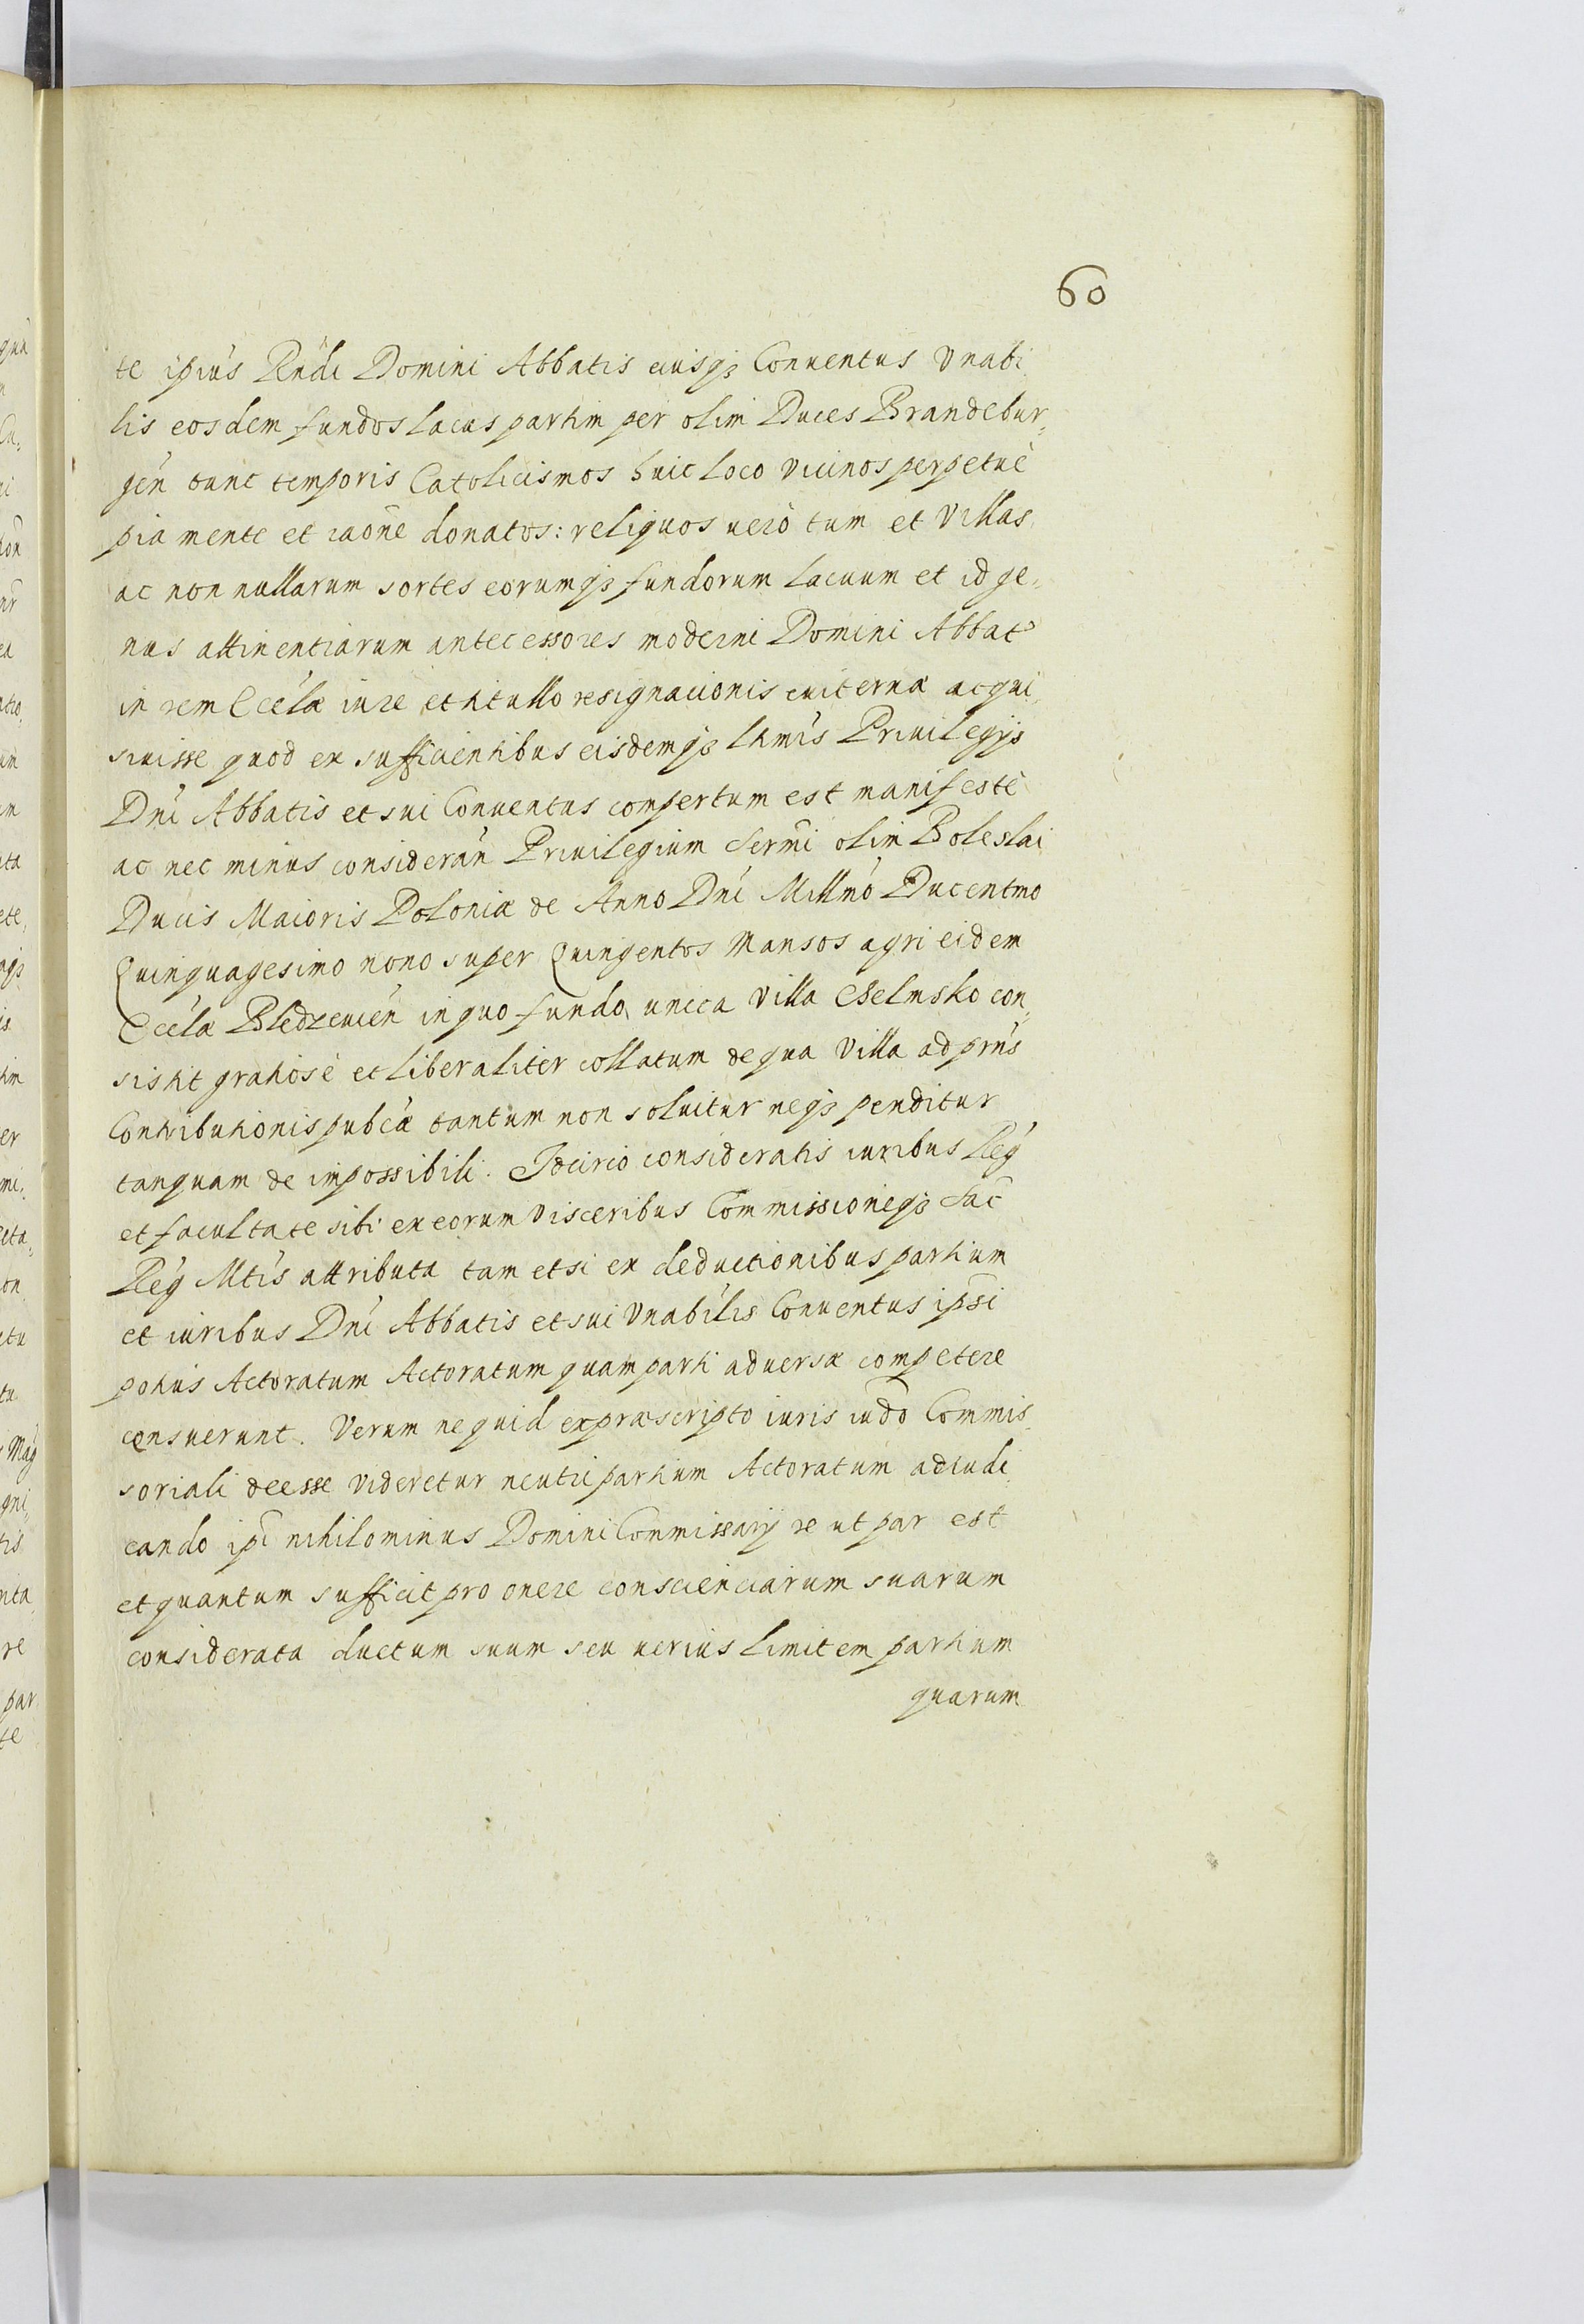 60
te ipiu̅s Rndi Domini Abbatis eiusq3 Conuentus Vnabi
lis eosdem fundos lacus partim per olim Duces Brandebur,,
gen̅ tunc temporis Catolicismos huic loco vicinos perpetue̅
pia mente et rao̅ne donatos: reliquos uero̅ tum et Villas
ac non nullarum sortes eorumq3 fundorum lacuum et id ge,
nus attinentiarum antecessores moderni Domini Abbat
in rem Eccla̅e iure et titullo resignacionis euiterna̅ acqui
siuisse quod ex sufficientibus eisdemq3 lr̅mis Priuilegÿs
Dni̅ Abbatis et sui Conuentus compertum est manifeste̅
ac nec minus consideran̅ Priuilegium Serm̅i olim Boleslai
Ducis Maioris Poloniæ de Anno Dni̅ Millmo̅ Ducentmo
Quinquagesimo nono super Quingentos Mansos agri eidem
Eccla̅e Bledzeuien̅ in quo fundo unica Villa Chelmsko con,,
sistit gratiose̅ et liberaliter collatum de qua Villa ad prn̅s
Contributionis pubc̅æ tantum non soluitur neq3 penditur
tanquam de impossibili. Idcirco consideratis iuribus Reg̅
et facultate sibi ex eorum visceribus Commissioneq3 Sac̅
Reg̅ Mtis̅ attributa tam etsi ex deductionibus partium
et iuribus Dni̅ Abbatis et sui Vnabi̅lis Conuentus ipsi
potius Actoratum Actoratum quam parti aduersæ competere
consuerunt. Verum ne quid ex præscripto iuris iudo̅ Commis
soriali deesse videretur neutri partium Actoratum adiudi
cando ipi̅ nihilominus Domini Commissarÿ re ut par est
et quantum sufficit pro onere conscienciarum suarum
considerata ductum suum seu uerius limitem partium
quarum